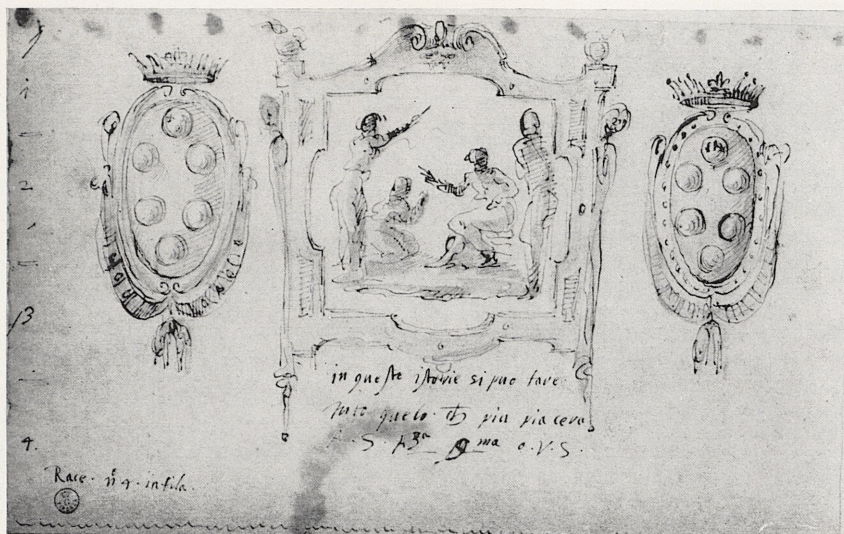 1
2
3
in queste istorie si puo fare
tuto quelo ch piu piacera
S. o. V. S.
4.
Race. n 4. in fila.